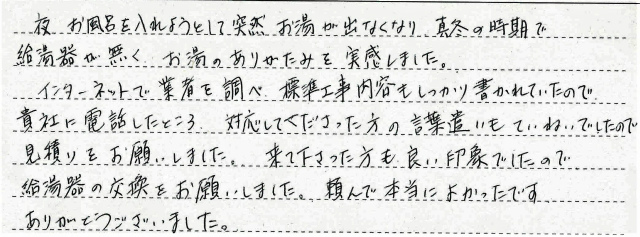 夜 お風呂を入れようとして突然 お湯が出なくなり 真冬の時期で
給湯器が無く お湯のありがたみを実感しました。
インターネットで 業者を調べ 標準工事内容もしっかり書かれていたので
貴社に電話したところ 対応してくださった方の言葉遣いもていねいでしたので
見積りをお願いしました。 来て下さった方も良い印象でしたので
給湯器の交換をお願いしました。 頼んで本当によかったです
ありがとうございました。